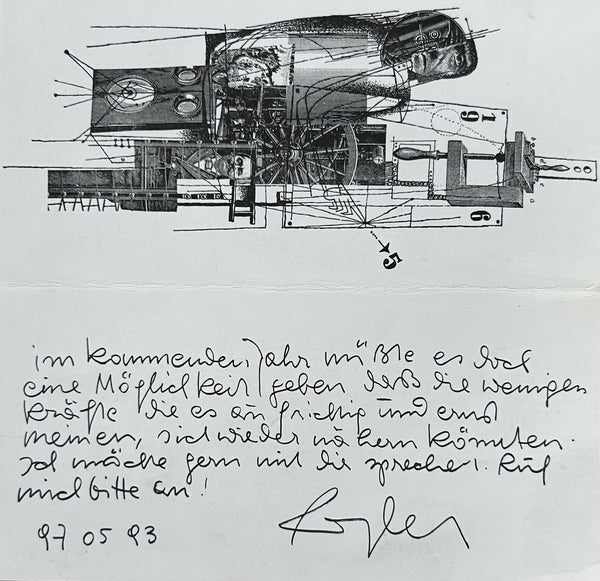 19
6
5
im kommenden Jahr müßte es doch
eine Möglichkeit geben daß die wenigen
Kräfte die es aufrichtig und ernst
meinen, sich wieder nähern könnten.
Ich möchte gern mit dir sprechen. Ruf
mich bitte an!
97 05 93